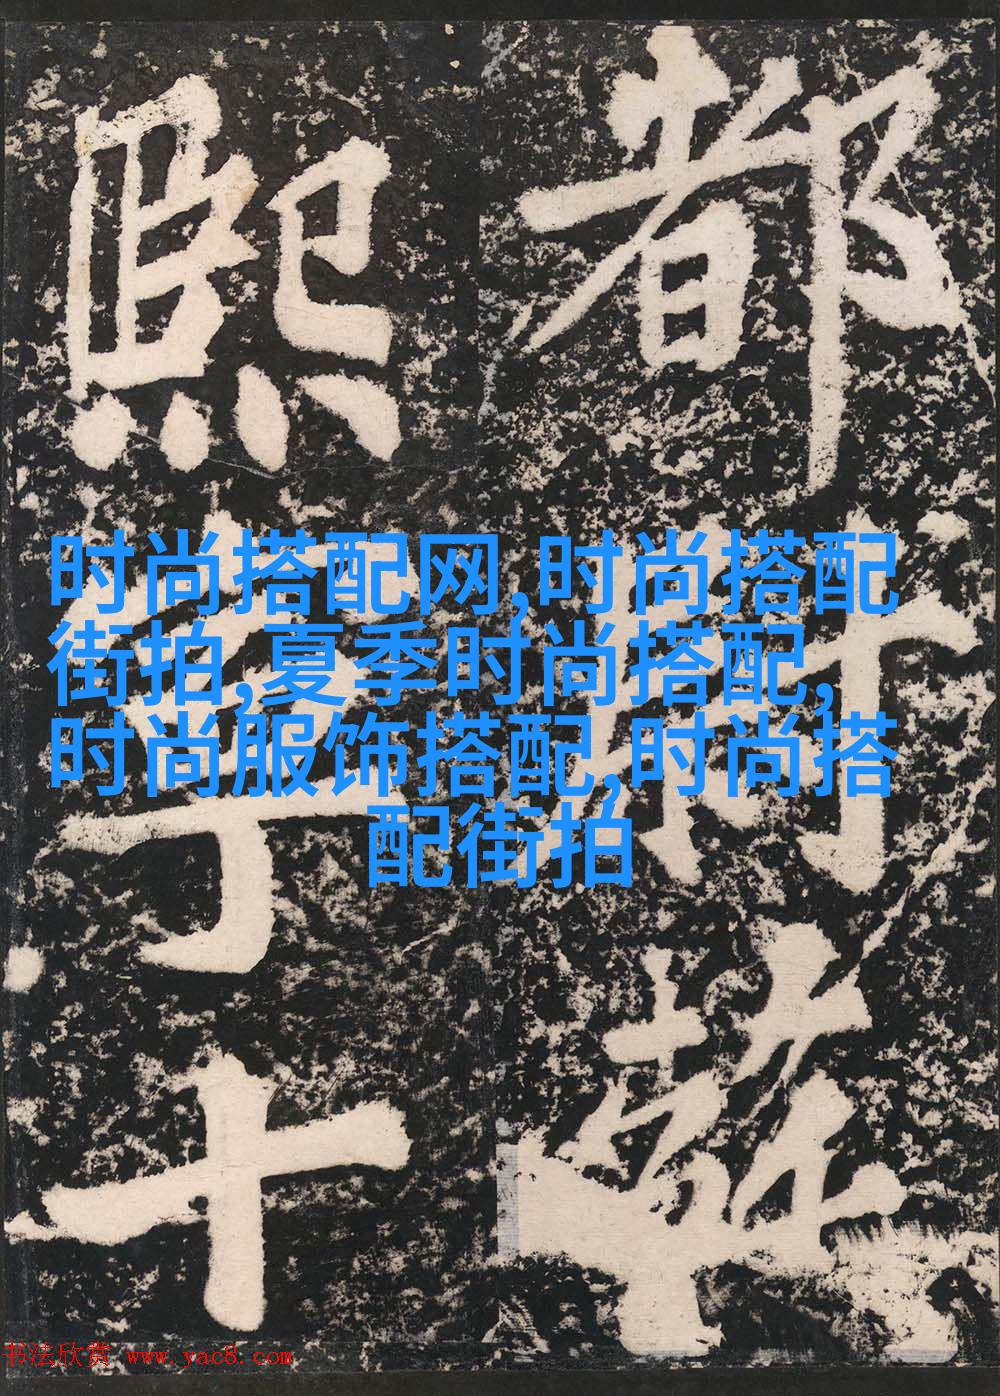 都
熙
平
十
时尚搭配网,时尚搭配
街拍,夏季时尚搭配,
时尚服饰搭配,时尚搭
配街拍
书法欣赏 www.yac8.com